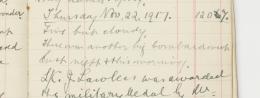 Thursday Nov. 22, 1917.
Fine but cloudy.
There was another big bombardment
last night & this morning.
Lt. J. Lawless was awarded
the military Medal by